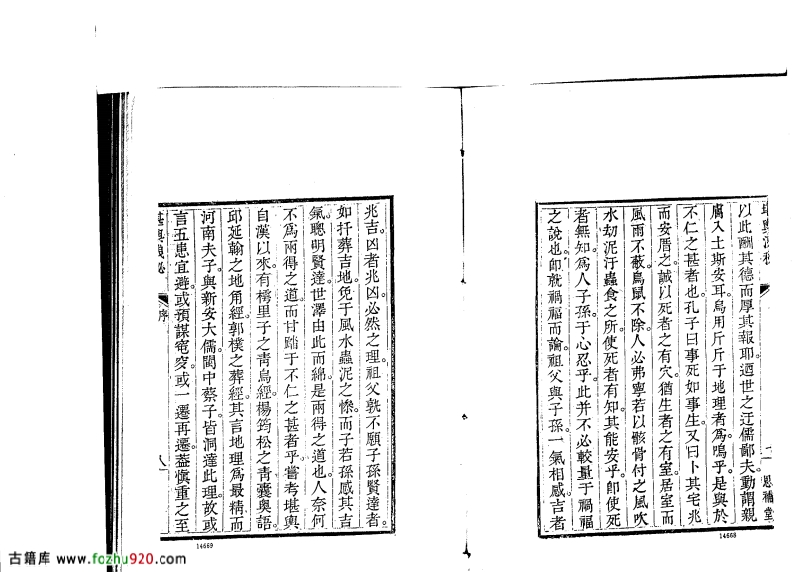 堪輿洩秘
恩補堂
以此酬其德而厚其報耶迺世之迂儒鄙夫動謂親
腐入土斯安耳烏用斤斤于地理者爲嗚乎是與於
不仁之甚者也孔子曰事死如事生又曰卜其宅兆
而安厝之誠以死者之有穴猶生者之有室居室而
風雨不蔽鳥鼠不除人必弗寧若以骸骨付之風吹
水刼泥汙蟲食之所使死者有知其能安乎卽使死
者無知爲人子孫于心忍乎此并不必較量于禍福
之說也卽就禍福而論祖父與子孫一氣相感吉者
14668
兆吉凶者兆凶必然之理祖父孰不願子孫賢達者
如扦葬吉地免于風水蟲泥之慘而子若孫感其吉
氣聰明賢達世澤由此而綿是兩得之道也人奈何
不爲兩得之道而甘蹈于不仁之甚者乎嘗考堪輿
自漢以來有樗里子之靑烏經楊筠松之靑囊奧語
邱延翰之地角經郭樸之葬經其言地理爲最精而
河南夫子與新安大儒閩中蔡子皆洞達此理故或
言五患宜避或預謀窀穸或一遷再遷葢愼重之至
堪輿洩秘
序
八
14669
古籍库 www.fozhu920.com